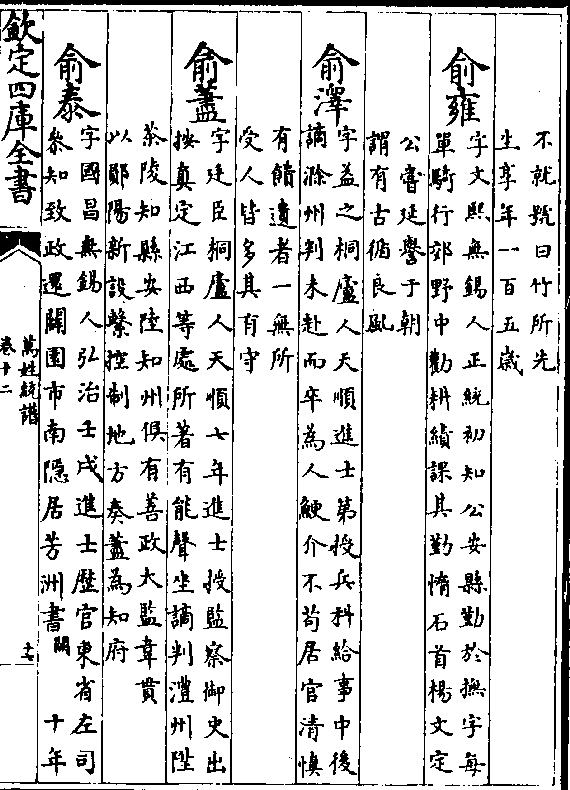 不就號曰竹所先
生享年一百五歲
俞雍
字文熙無錫人正統初知公安縣勤於撫字每
單騎行郊野中勸耕績課其勤惰石首楊文定
公嘗延譽于朝
謂有古循良風
俞澤
字益之桐廬人天順進士第授兵科給事中後
謫滁州判未赴而卒為人鯁介不苟居官清慎
有饋遺者一無所
受人皆多其有守
俞藎
字廷臣桐廬人天順七年進士授監察御史出
按真定江西等處所著有能聲坐謫判澧州陞
茶陵知縣安陸知州俱有善政太監韋貫
以鄖陽新設繁控制地方奏藎為知府
俞泰
字國昌無錫人弘治壬戌進士歷官東省左司
叅知致政還闢園市南隠居芳洲書闕十年
欽定四庫全書
萬姓統譜
卷十二